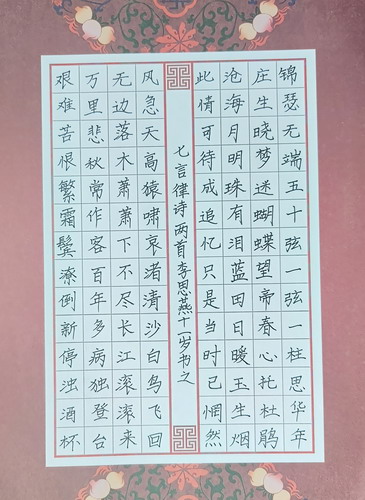 锦瑟无端五十弦一弦一柱思华年
庄生晓梦迷蝴蝶望帝春心托杜鹃
沧海月明珠有泪蓝田日暖玉生烟
此情可待成追忆只是当时已惘然
七言律诗两首李思燕十一岁书之
风急天高猿啸哀渚清沙白鸟飞回
无边落木萧萧下不尽长江滚滚来
万里悲秋常作客百年多病独登台
艰难苦恨繁霜鬓潦倒新停浊酒杯